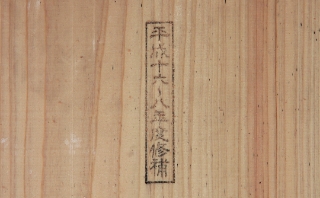 平成十六〜八年度修補